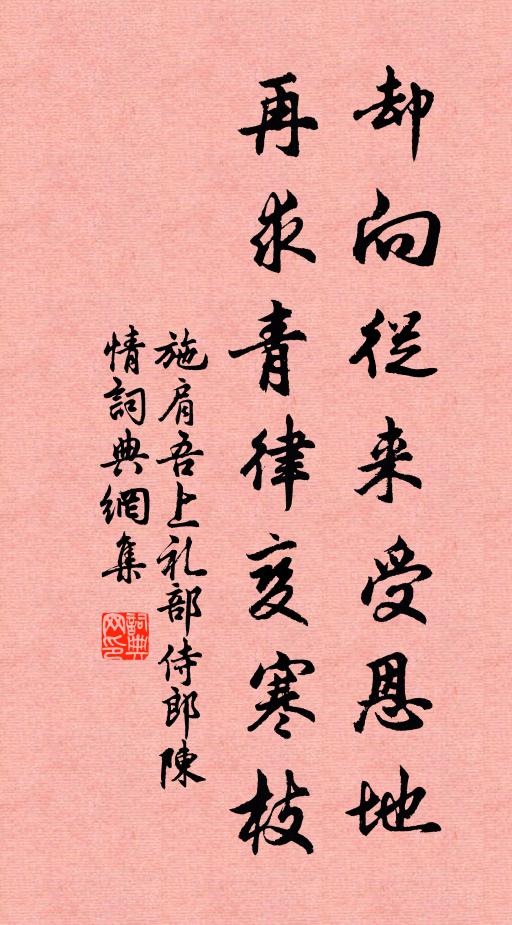 却向從来受恩地
再求青律变寒枝
施肩吾上礼部侍郎陳
情詞典網集
詞典
网印